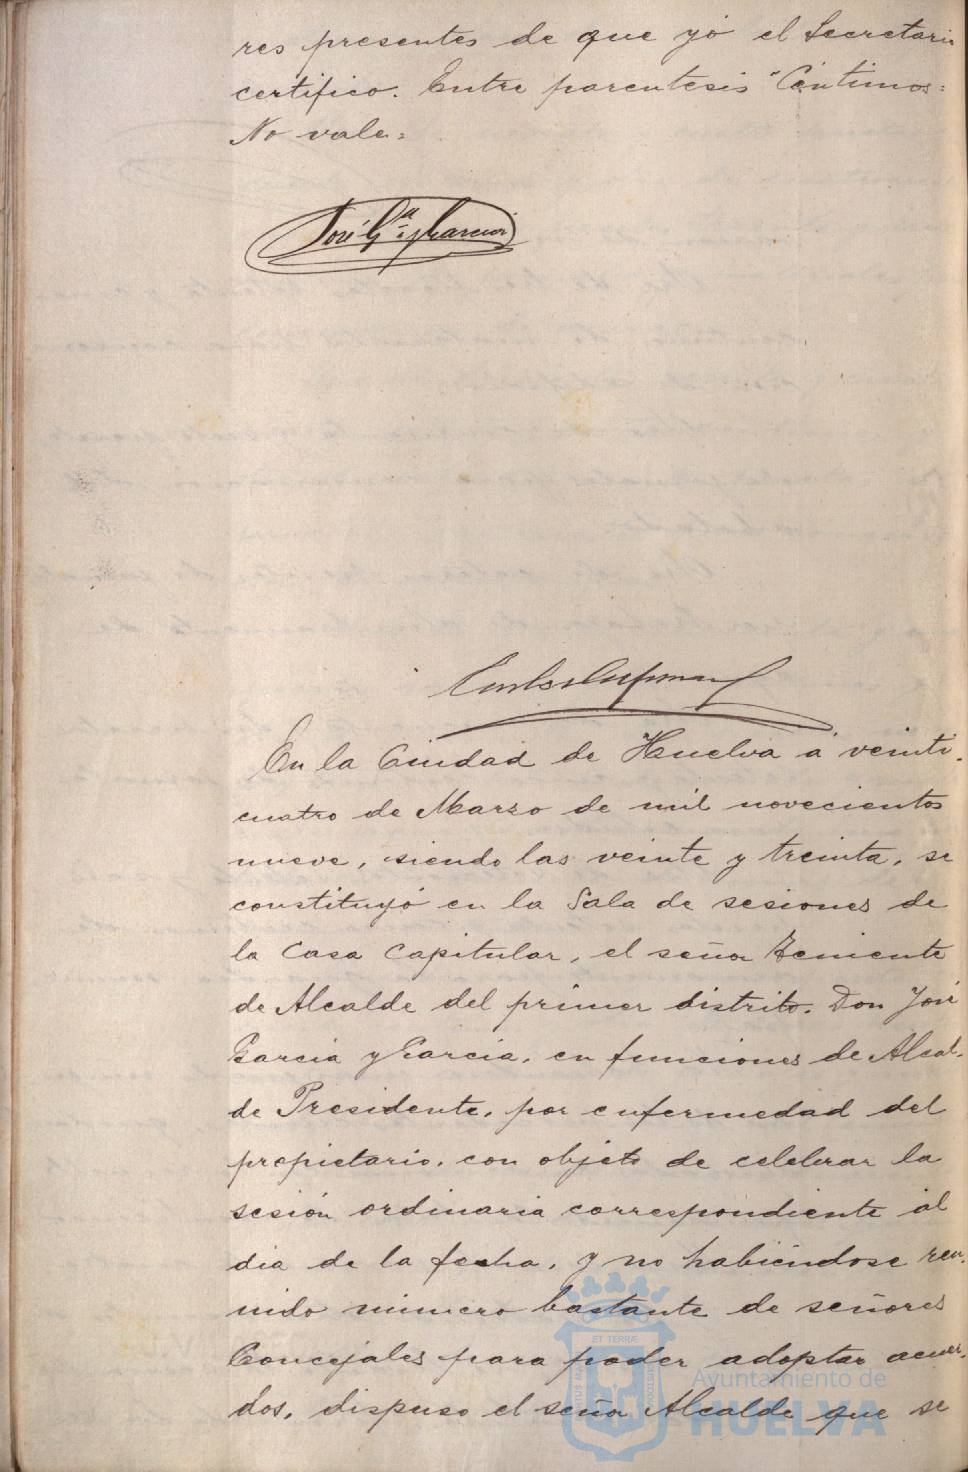 res presentes de que yó el Secretario
certifico. Entre parentesis "Céntimos=
No vale=
José Gª y Garcia
En la Ciudad de Huelva á veinti-
cuatro de Marzo de mil novecientos
nueve, siendo las veinte y treinta, se
constituyó en la Sala de sesiones de
la Casa Capitular, el señor Teniente
de Alcalde del primer distrito. Don José
Garcia y Garcia, en funciones de Alcal-
de Presidente, por enfermedad del
propietario, con objeto de celebrar la
sesión ordinaria correspondiente al
dia de la fecha, y no habiéndose reu-
nido número bastante de señores
Concejales para poder adoptar acuer-
dos, dispuso el señor Alcalde que se
ET TERRÆ
Ayuntamiento de
HUELVA